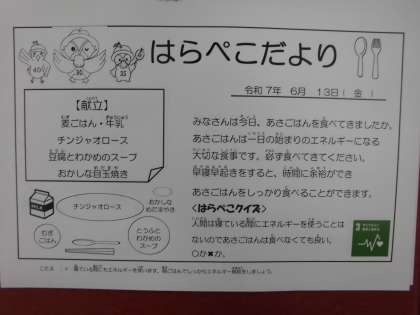 はらぺこだより
令和7年 6月 13日( 金 )
【献立】
麦ごはん・牛乳
チンジャオロース
豆腐とわかめのスープ
おかしな目玉焼き
みなさんは今日、あさごはんを食べてきましたか。
あさごはんは一日の始まりのエネルギーになる
大切な食事です。必ず食べてきてください。
早寝早起きをすると、時間に余裕ができ
あさごはんをしっかり食べることができます。
<はらぺこクイズ>
人間は寝ている間にエネルギーを使うことは
ないのであさごはんは食べなくても良い。
○か✖か。
チンジャオロース
おかしな
めだまやき
むぎ
ごはん
とうふと
わかめの
スープ
3